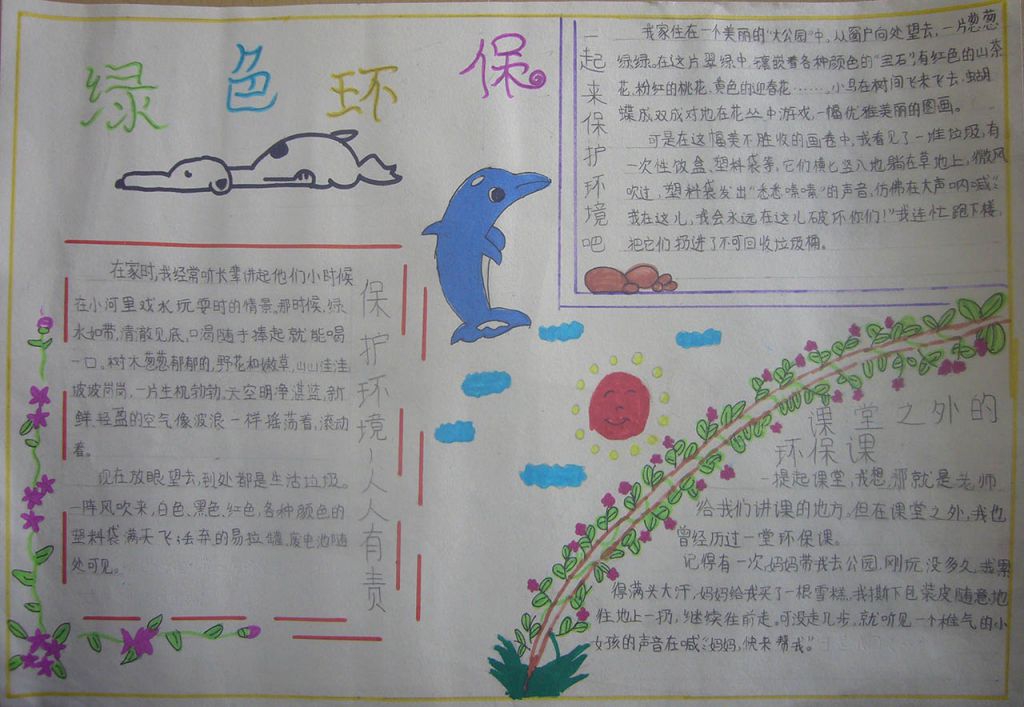 绿色环保
一起来保护环境吧
我家住在一个美丽的"大公园"中,从窗户向处望去,一片葱葱
绿绿。在这片翠绿中,镶嵌着各种颜色的"宝石",有红色的山茶
花,粉红的桃花,黄色的迎春花……,小鸟在树间飞来飞去,蝴
蝶成双成对地在花丛中游戏,一幅优雅美丽的图画。
可是在这幅美不胜收的画卷中,我看见了一堆垃圾,有
一次性饭盒、塑料袋等,它们横七竖八地躺在草地上,微风
吹过,塑料袋发出"悉悉嗦嗦"的声音,仿佛在大声呐喊:"
我在这儿,我会永远在这儿破坏你们!"我连忙跑下楼,
把它们扔进了不可回收垃圾桶。
保护环境-人人有责
在家时,我经常听长辈讲起他们小时候
在小河里戏水玩耍时的情景。那时候,绿
水如带,清澈见底,口渴随手捧起就能喝
一口。树木葱葱郁郁的,野花和嫩草,山山洼洼
坡坡岗岗,一片生机勃勃,天空明净湛蓝,新
鲜、轻盈的空气像波浪一样摇荡着,滚动
着。
现在放眼望去,到处都是生活垃圾。
一阵风吹来,白色、黑色、红色,各种颜色的
塑料袋满天飞;丢弃的易拉罐、废电池随
处可见。
课堂之外的
环保课
一提起课堂,我想,那就是老师
给我们讲课的地方。但在课堂之外,我也
曾经历过一堂环保课。
记得有一次,妈妈带我去公园,刚玩没多久,我累
得满头大汗,妈妈给我买了一根雪糕,我撕下包装皮随意地
往地上一扔,继续往前走。可没走几步,就听见一个稚气的小
女孩的声音在喊:"妈妈,快来帮我。"